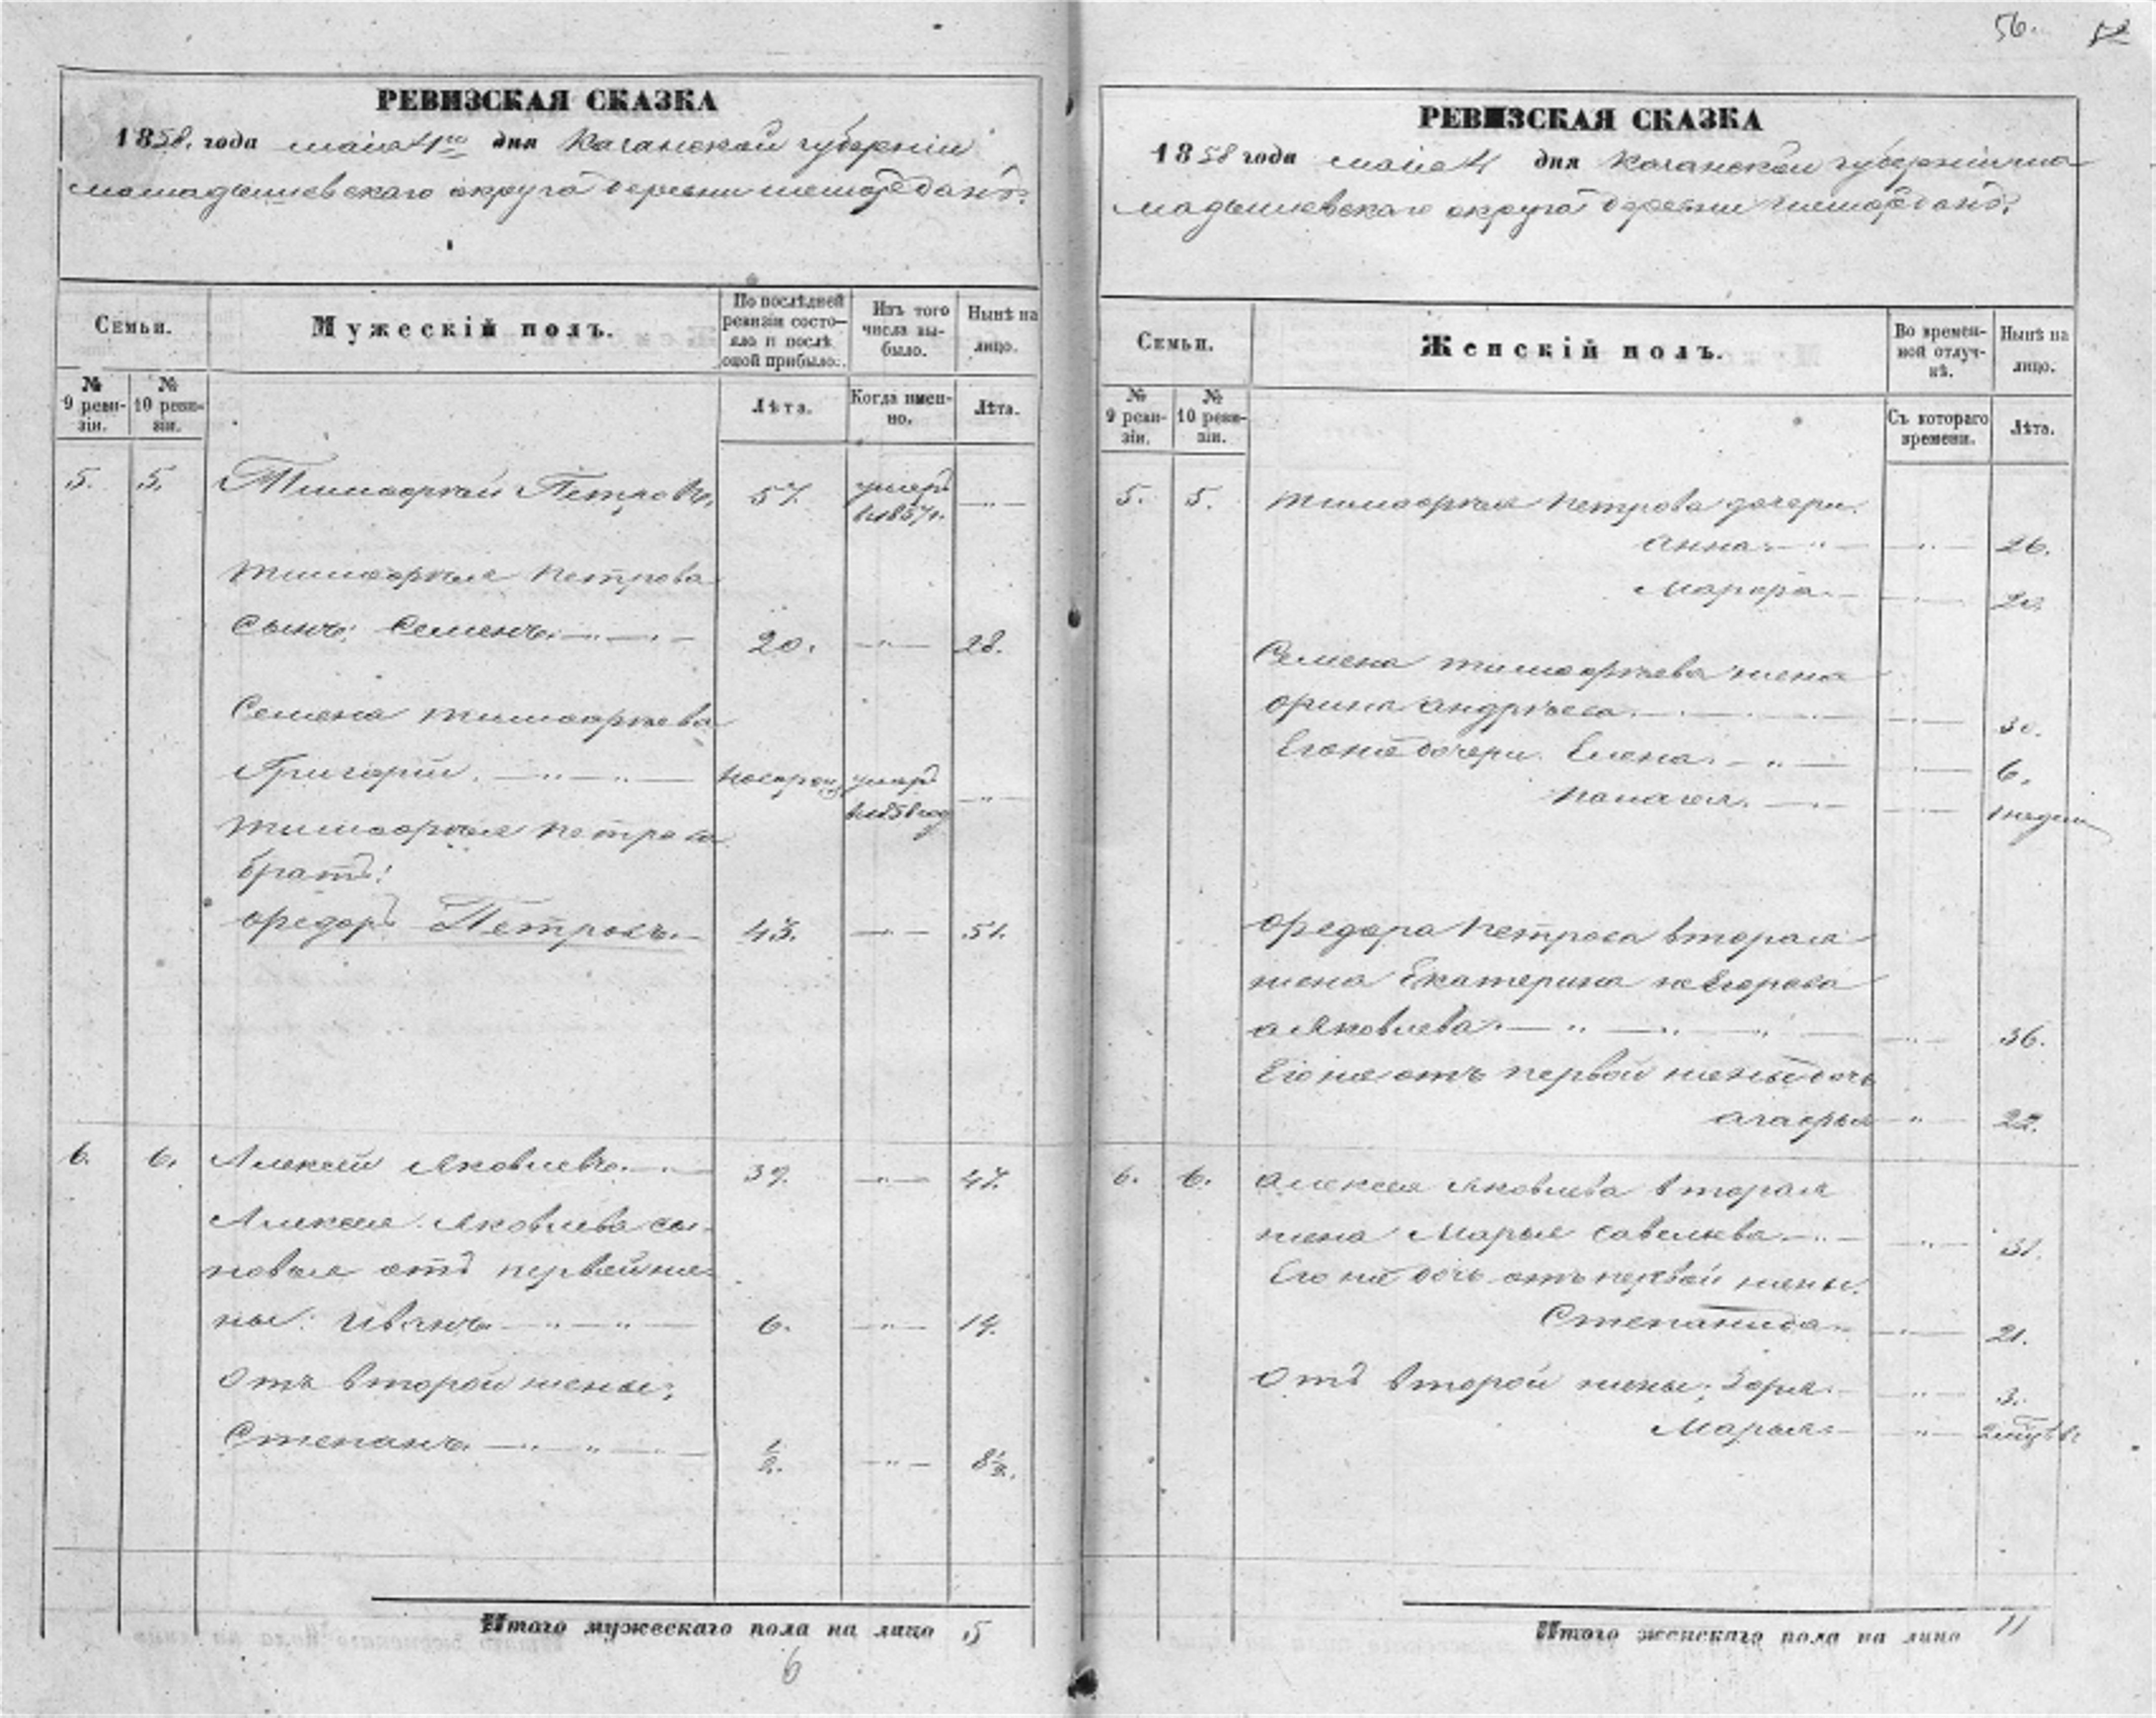 56.
РЕВИЗСКАЯ СКАЗКА
1858. года маія 4го дня Казанской губерніи
мамадышевскаго округа деревни шемордонъ.
Семьи.
Мужескій полъ.
По послѣдней ревизіи состо-
яло и послѣ оной прибыло.
Изъ того числа вы-
было.
Нынѣ на лицо.
№ 9 реви-
зіи.
№ 10 реви-
зіи.
Лѣта.
Когда имен-
но.
Лѣта.
5. 5. Тимоофѣй Петровъ. 57. умеръ
в 1857г.
Тимоофѣя Петрова
сынъ: Семенъ. 20. 28.
Семена тимоофѣева
Григорій. послѣ умеръ
в 1858 году
Тимоофѣя Петрова
братъ:
Ѳедоръ Петровъ. 43. 51.
6. 6. Алексѣй Яковлевъ. 39. 47.
Алексѣя Яковлева сы-
новья отъ первой же-
ны: Иванъ 6. 14.
Отъ второй жены;
Степанъ. 1/2. 8 1/2.
Итого мужескаго пола на лицо 5
6
РЕВИЗСКАЯ СКАЗКА
1858 года маія 4 дня Казанской губерніи ма
мадышевскаго округа деревни шемордонъ.
Семьи.
Женскій полъ.
Во времен-
ной отлуч-
кѣ.
Нынѣ на лицо.
№ 9 реви-
зіи.
№ 10 реви-
зіи.
Съ котораго времени.
Лѣта.
5. 5. Тимоофѣя Петрова дочери.
Анна 26.
Марфа 20.
Семена тимоофѣева жена
Орина Андрѣева. 30.
Его же дочери Елена. 6.
Палагея. 1 недели
Ѳедора Петрова вторая
жена Екатерина не Егорова
а Яковлева. 36.
Его же отъ первой жены дочь
Агафья 22.
6. 6. Алексѣя Яковлева вторая
жена Марья Савельева. 31.
Его же дочь отъ первой жены.
Степанида 21.
Отъ второй жены; Зоря 3.
Марья
Итого женскаго пола на лицо 11